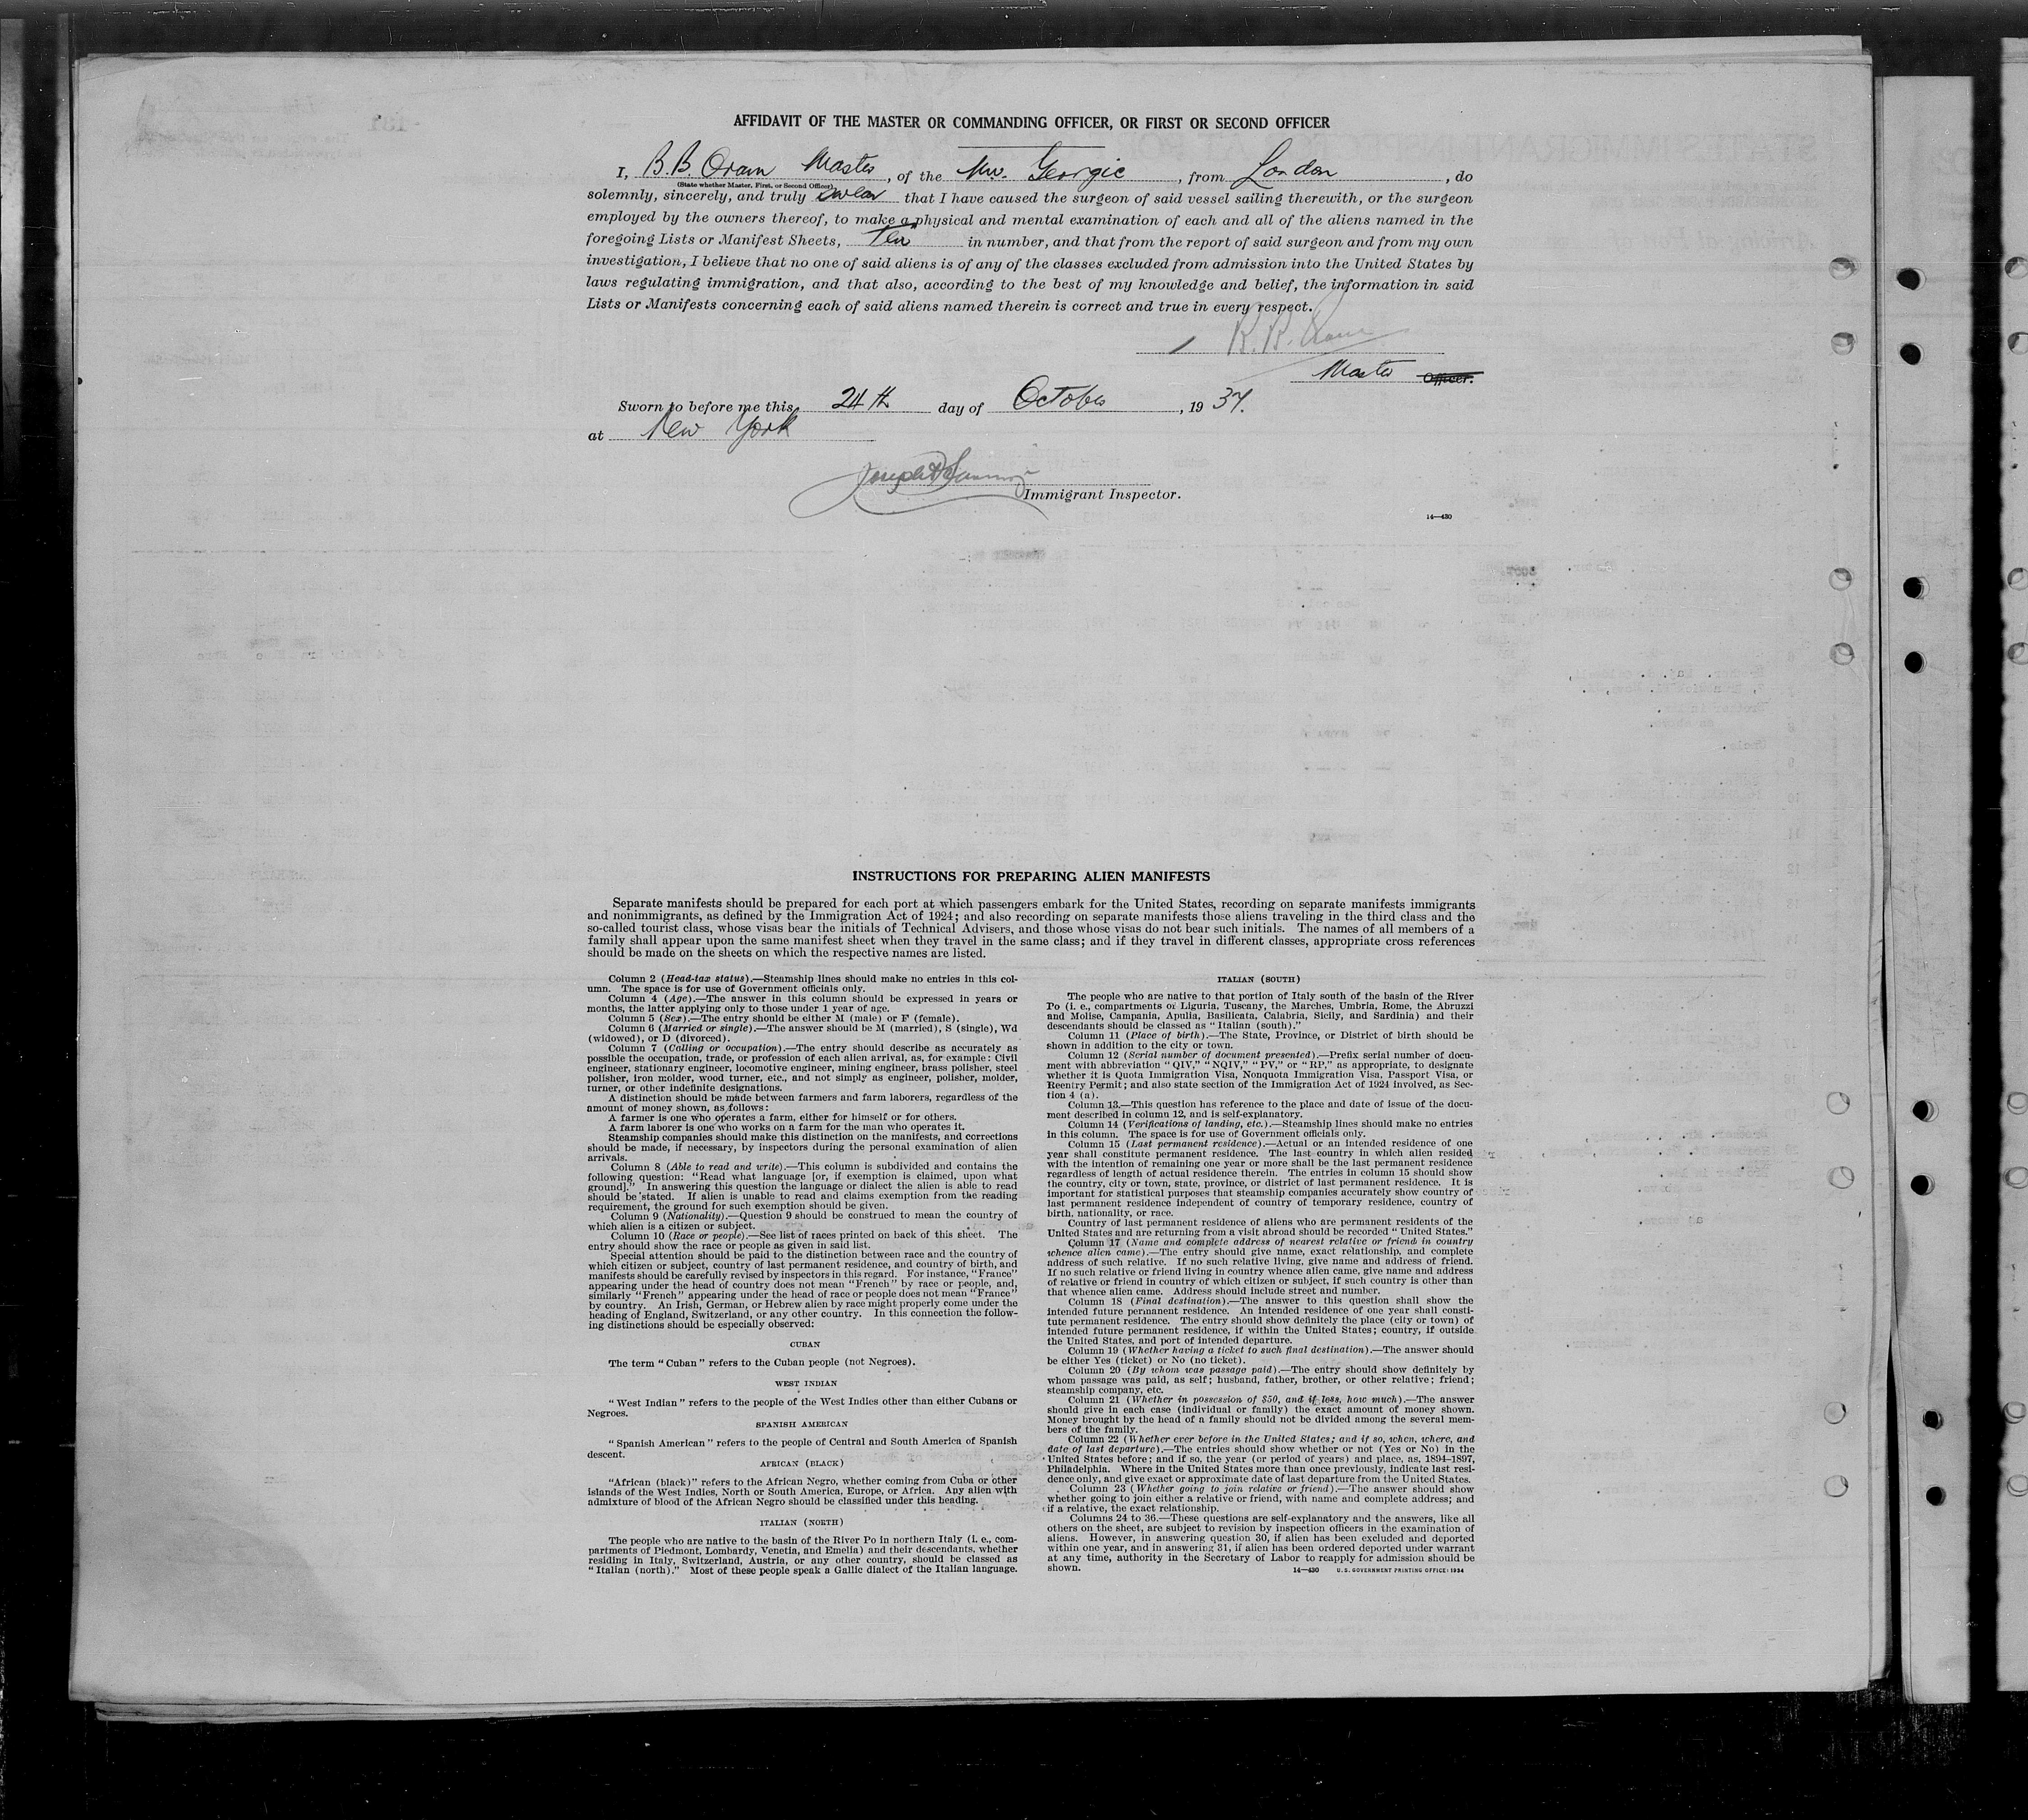 AFFIDAVIT OF THE MASTER OR COMMANDING OFFICER, OR FIRST OR SECOND OFFICER
I, B.B. Oram Master, of the Mv. Georgic, from London, do
(State whether Master, First, or Second Officer)
solemnly, sincerely, and truly swear that I have caused the surgeon of said vessel sailing therewith, or the surgeon
employed by the owners thereof, to make a physical and mental examination of each and all of the aliens named in the
foregoing Lists or Manifest Sheets, Ten in number, and that from the report of said surgeon and from my own
investigation, I believe that no one of said aliens is of any of the classes excluded from admission into the United States by
laws regulating immigration, and that also, according to the best of my knowledge and belief, the information in said
Lists or Manifests concerning each of said aliens named therein is correct and true in every respect.
B.B. Oram
Master Officer.
Sworn to before me this 24th day of October, 1937.
at New York
Immigrant Inspector.
14—430
INSTRUCTIONS FOR PREPARING ALIEN MANIFESTS
Separate manifests should be prepared for each port at which passengers embark for the United States, recording on separate manifests immigrants
and nonimmigrants, as defined by the Immigration Act of 1924; and also recording on separate manifests those aliens traveling in the third class and the
so-called tourist class, whose visas bear the initials of Technical Advisers, and those whose visas do not bear such initials. The names of all members of a
family shall appear upon the same manifest sheet when they travel in the same class; and if they travel in different classes, appropriate cross references
should be made on the sheets on which the respective names are listed.
Column 2 (Head-tax status).—Steamship lines should make no entries in this col-
umn. The space is for use of Government officials only.
Column 4 (Age).—The answer in this column should be expressed in years or
months, the latter applying only to those under 1 year of age.
Column 5 (Sex).—The entry should be either M (male) or F (female).
Column 6 (Married or single).—The answer should be M (married), S (single), Wd
(widowed), or D (divorced).
Column 7 (Calling or occupation).—The entry should describe as accurately as
possible the occupation, trade, or profession of each alien arrival, as, for example: Civil
engineer, stationary engineer, locomotive engineer, mining engineer, brass polisher, steel
polisher, iron molder, wood turner, etc., and not simply as engineer, polisher, molder,
turner, or other indefinite designations.
A distinction should be made between farmers and farm laborers, regardless of the
amount of money shown, as follows:
A farmer is one who operates a farm, either for himself or for others.
A farm laborer is one who works on a farm for the man who operates it.
Steamship companies should make this distinction on the manifests, and corrections
should be made, if necessary, by inspectors during the personal examination of alien
arrivals.
Column 8 (Able to read and write).—This column is subdivided and contains the
following question: "Read what language [or, if exemption is claimed, upon what
ground]." In answering this question the language or dialect the alien is able to read
should be stated. If alien is unable to read and claims exemption from the reading
requirement, the ground for such exemption should be given.
Column 9 (Nationality).—Question 9 should be construed to mean the country of
which alien is a citizen or subject.
Column 10 (Race or people).—See list of races printed on back of this sheet. The
entry should show the race or people as given in said list.
Special attention should be paid to the distinction between race and the country of
which citizen or subject, country of last permanent residence, and country of birth, and
manifests should be carefully revised by inspectors in this regard. For instance, "France"
appearing under the head of country does not mean "French" by race or people, and,
similarly "French" appearing under the head of race or people does not mean "France"
by country. An Irish, German, or Hebrew alien by race might properly come under the
heading of England, Switzerland, or any other country. In this connection the follow-
ing distinctions should be especially observed:
CUBAN
The term "Cuban" refers to the Cuban people (not Negroes).
WEST INDIAN
"West Indian" refers to the people of the West Indies other than either Cubans or
Negroes.
SPANISH AMERICAN
"Spanish American" refers to the people of Central and South America of Spanish
descent.
AFRICAN (BLACK)
"African (black)" refers to the African Negro, whether coming from Cuba or other
islands of the West Indies, North or South America, Europe, or Africa. Any alien with
admixture of blood of the African Negro should be classified under this heading.
ITALIAN (NORTH)
The people who are native to the basin of the River Po in northern Italy (i. e., com-
partments of Piedmont, Lombardy, Venetia, and Emelia) and their descendants, whether
residing in Italy, Switzerland, Austria, or any other country, should be classed as
"Italian (north)." Most of these people speak a Gallic dialect of the Italian language.
ITALIAN (SOUTH)
The people who are native to that portion of Italy south of the basin of the River
Po (i. e., compartments of Liguria, Tuscany, the Marches, Umbria, Rome, the Abruzzi
and Molise, Campania, Apulia, Basilicata, Calabria, Sicily, and Sardinia) and their
descendants should be classed as "Italian (south)."
Column 11 (Place of birth).—The State, Province, or District of birth should be
shown in addition to the city or town.
Column 12 (Serial number of document presented).—Prefix serial number of docu-
ment with abbreviation "QIV," "NQIV," "PV," or "RP," as appropriate, to designate
whether it is Quota Immigration Visa, Nonquota Immigration Visa, Passport Visa, or
Reentry Permit; and also state section of the Immigration Act of 1924 involved, as Sec-
tion 4 (a).
Column 13.—This question has reference to the place and date of issue of the docu-
ment described in column 12, and is self-explanatory.
Column 14 (Verifications of landing, etc.).—Steamship lines should make no entries
in this column. The space is for use of Government officials only.
Column 15 (Last permanent residence).—Actual or an intended residence of one
year shall constitute permanent residence. The last country in which alien resided
with the intention of remaining one year or more shall be the last permanent residence
regardless of length of actual residence therein. The entries in column 15 should show
the country, city or town, state, province, or district of last permanent residence. It is
important for statistical purposes that steamship companies accurately show country of
last permanent residence independent of country of temporary residence, country of
birth, nationality, or race.
Country of last permanent residence of aliens who are permanent residents of the
United States and are returning from a visit abroad should be recorded "United States."
Column 17 (Name and complete address of nearest relative or friend in country
whence alien came).—The entry should give name, exact relationship, and complete
address of such relative. If no such relative living, give name and address of friend.
If no such relative or friend living in country whence alien came, give name and address
of relative or friend in country of which citizen or subject, if such country is other than
that whence alien came. Address should include street and number.
Column 18 (Final destination).—The answer to this question shall show the
intended future permanent residence. An intended residence of one year shall consti-
tute permanent residence. The entry should show definitely the place (city or town) of
intended future permanent residence, if within the United States; country, if outside
the United States, and port of intended departure.
Column 19 (Whether having a ticket to such final destination).—The answer should
be either Yes (ticket) or No (no ticket).
Column 20 (By whom was passage paid).—The entry should show definitely by
whom passage was paid, as self; husband, father, brother, or other relative; friend;
steamship company, etc.
Column 21 (Whether in possession of $50, and if less, how much).—The answer
should give in each case (individual or family) the exact amount of money shown.
Money brought by the head of a family should not be divided among the several mem-
bers of the family.
Column 22 (Whether ever before in the United States; and if so, when, where, and
date of last departure).—The entries should show whether or not (Yes or No) in the
United States before; and if so, the year (or period of years) and place, as, 1894–1897,
Philadelphia. Where in the United States more than once previously, indicate last resi-
dence only, and give exact or approximate date of last departure from the United States.
Column 23 (Whether going to join relative or friend).—The answer should show
whether going to join either a relative or friend, with name and complete address; and
if a relative, the exact relationship.
Columns 24 to 36.—These questions are self-explanatory and the answers, like all
others on the sheet, are subject to revision by inspection officers in the examination of
aliens. However, in answering question 30, if alien has been excluded and deported
within one year, and in answering 31, if alien has been ordered deported under warrant
at any time, authority in the Secretary of Labor to reapply for admission should be
shown.
14—430 U.S. GOVERNMENT PRINTING OFFICE: 1934